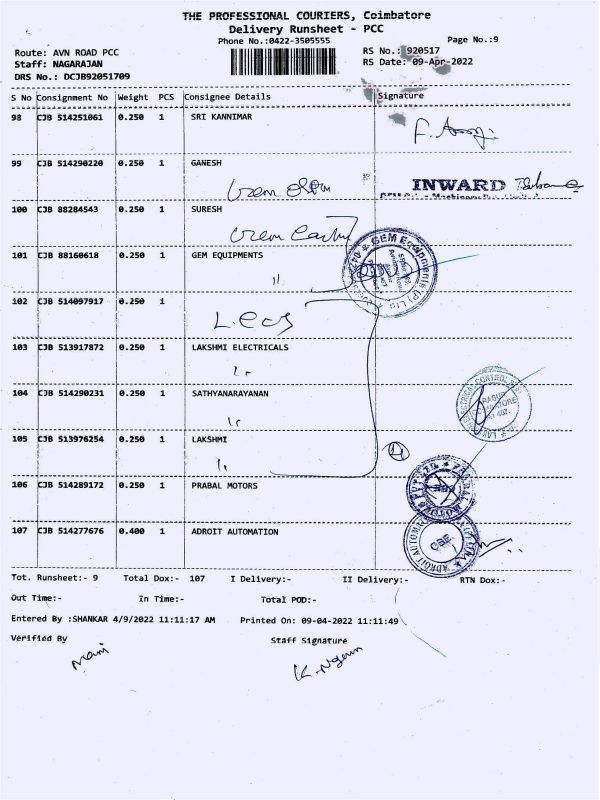 THE PROFESSIONAL COURIERS, Coimbatore
Delivery Runsheet - PCC
Phone No.:0422-3505555
Page No.:9
Route: AVN ROAD PCC
RS No.: 920517
Staff: NAGARAJAN
RS Date: 09-Apr-2022
DRS No.: DCJB92051709
S No Consignment No Weight PCS Consignee Details Signature
98 CJB 514251061 0.250 1 SRI KANNIMAR
99 CJB 514290220 0.250 1 GANESH
INWARD
100 CJB 88284543 0.250 1 SURESH
101 CJB 88160618 0.250 1 GEM EQUIPMENTS
GEM Equipments (P) Ltd
102 CJB 514097917 0.250 1
103 CJB 513917872 0.250 1 LAKSHMI ELECTRICALS
104 CJB 514290231 0.250 1 SATHYANARAYANAN
105 CJB 513976254 0.250 1 LAKSHMI
106 CJB 514289172 0.250 1 PRABAL MOTORS
107 CJB 514277676 0.400 1 ADROIT AUTOMATION
CBE
Tot. Runsheet:- 9 Total Dox:- 107 I Delivery:- II Delivery:- RTN Dox:-
Out Time:- In Time:- Total POD:-
Entered By :SHANKAR 4/9/2022 11:11:17 AM Printed On: 09-04-2022 11:11:49
Verified By Staff Signature
Mani